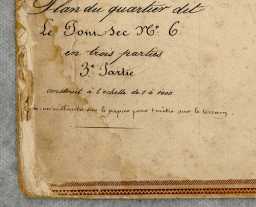 Plan du quartier dit
Le Pont Sec No. 6
en trois parties
3e Partie
construit à l'échelle de 1 à 1000
sur le papier pour 1 mètre sur le terrain.